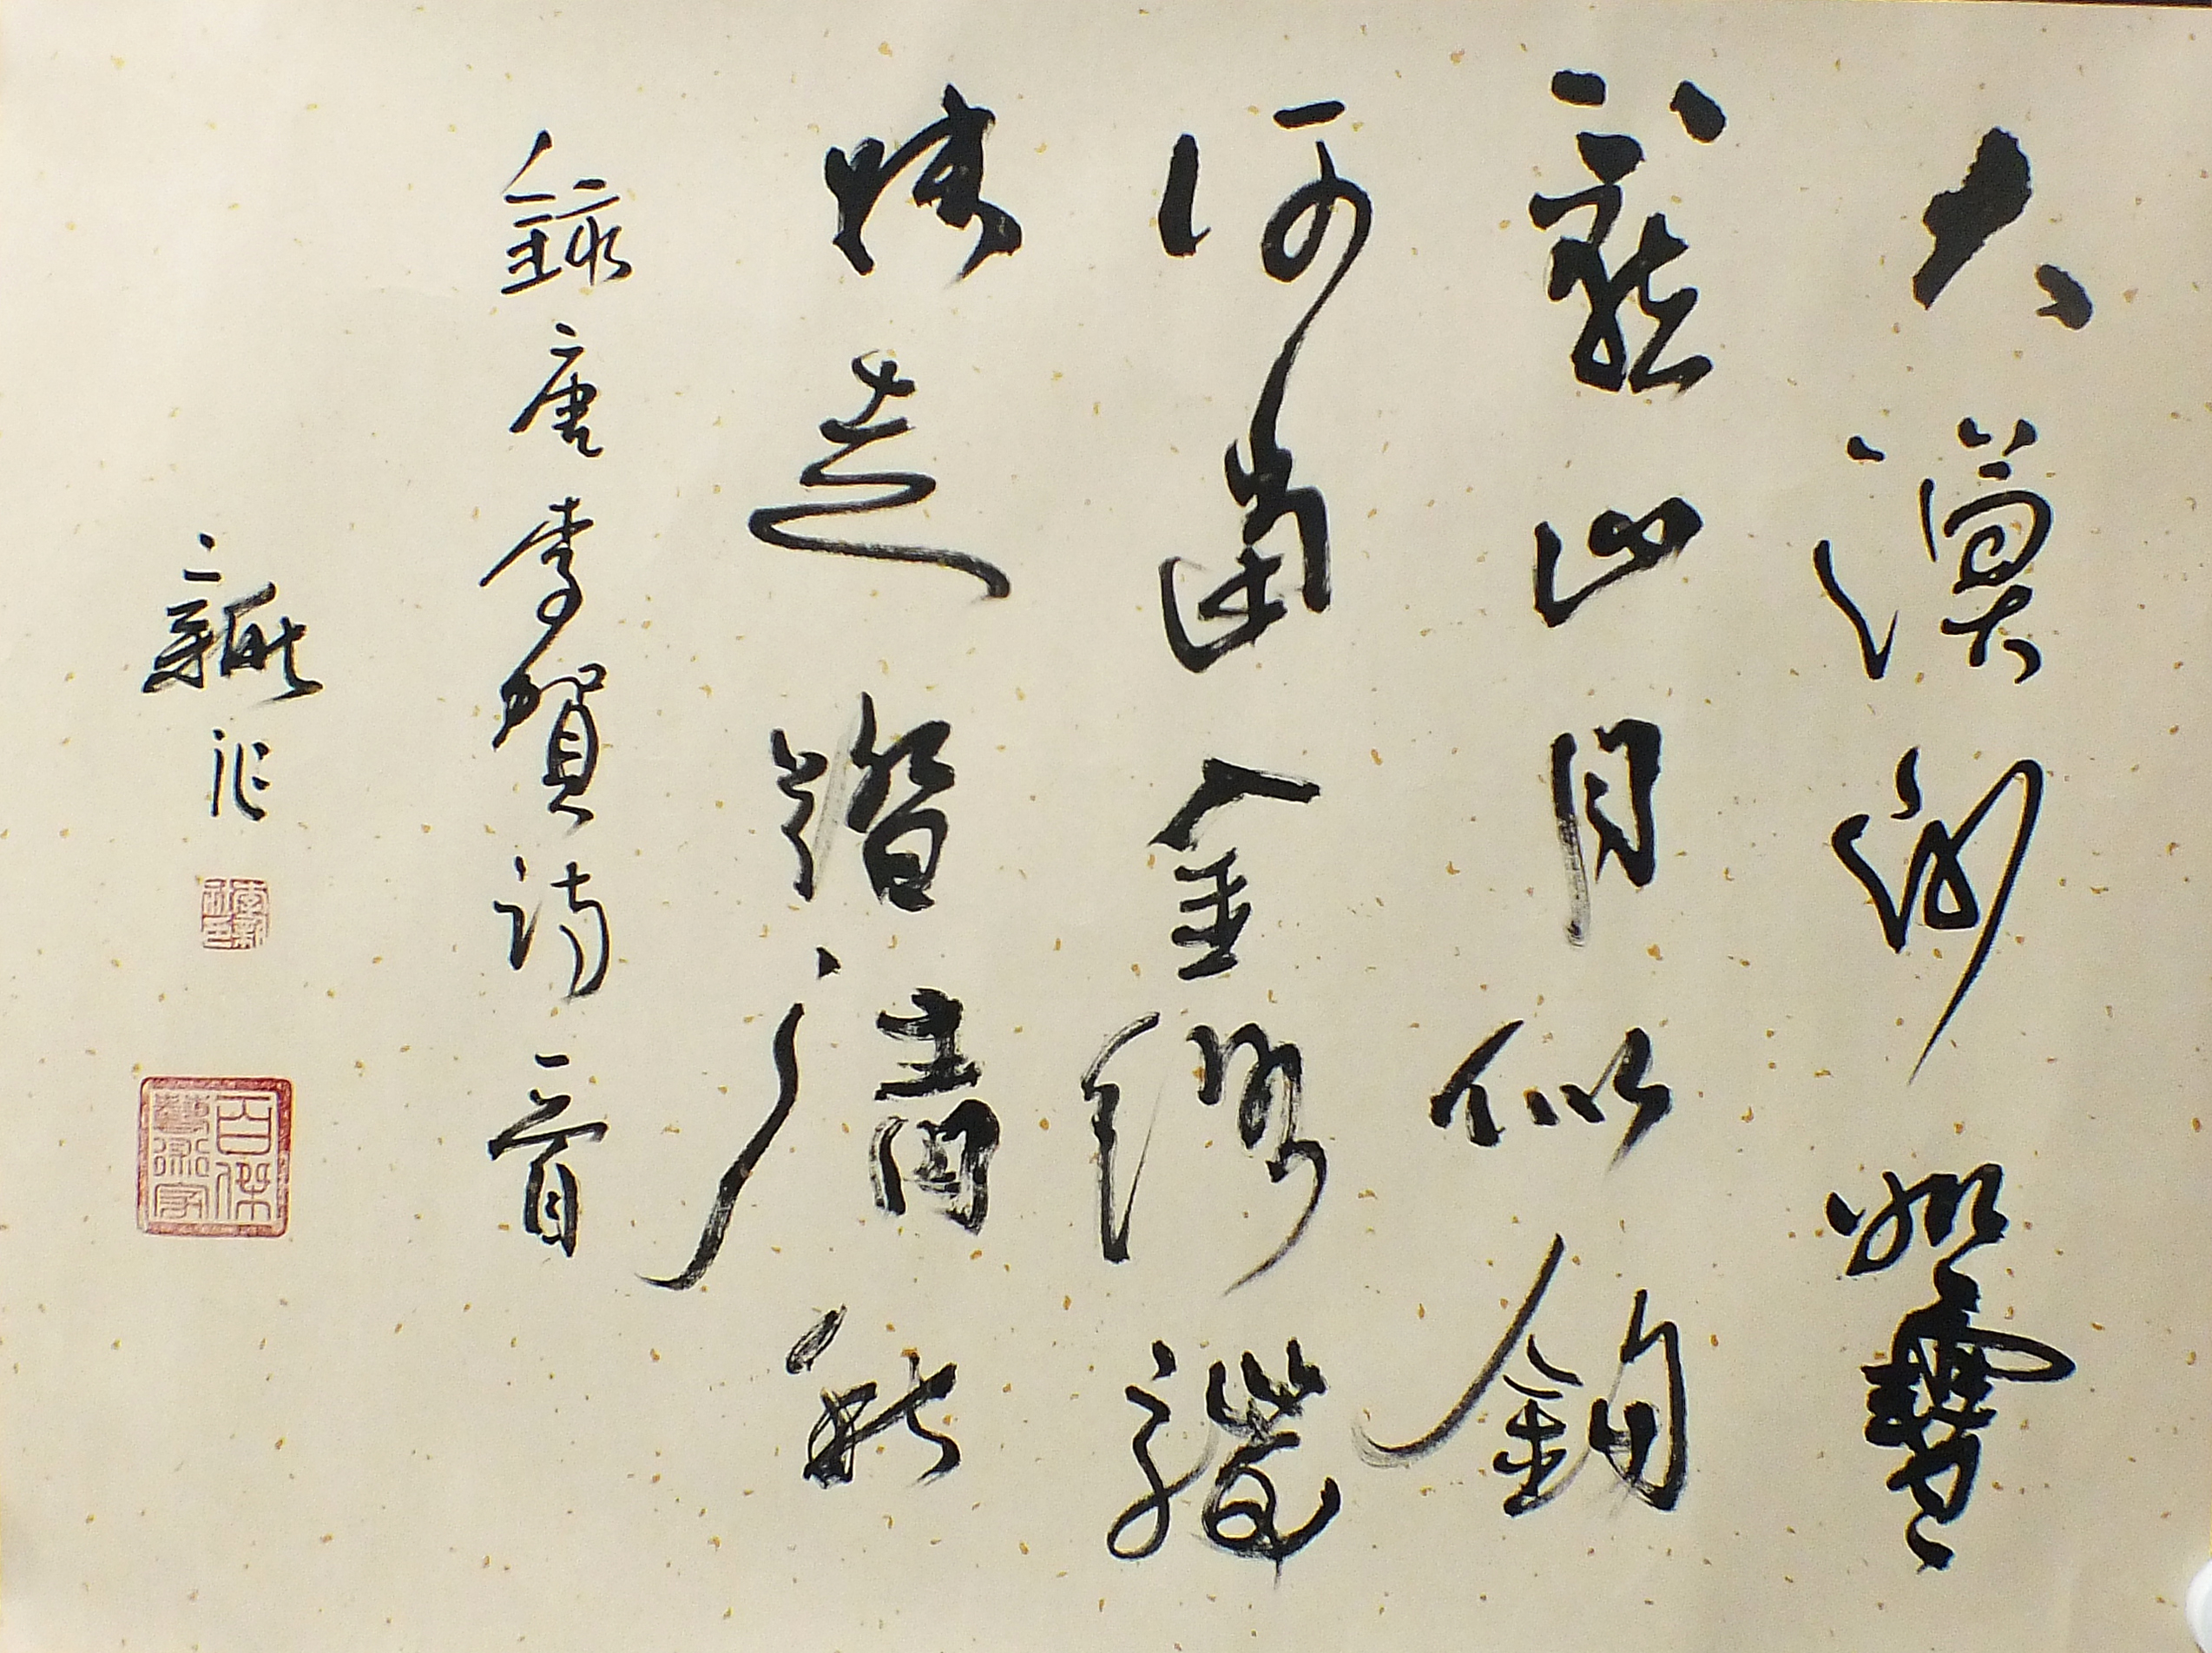 大漠沙如雪
燕山月似鉤
何當金絡腦
快走踏清秋
錄唐李賀詩一首
百傑藝術家